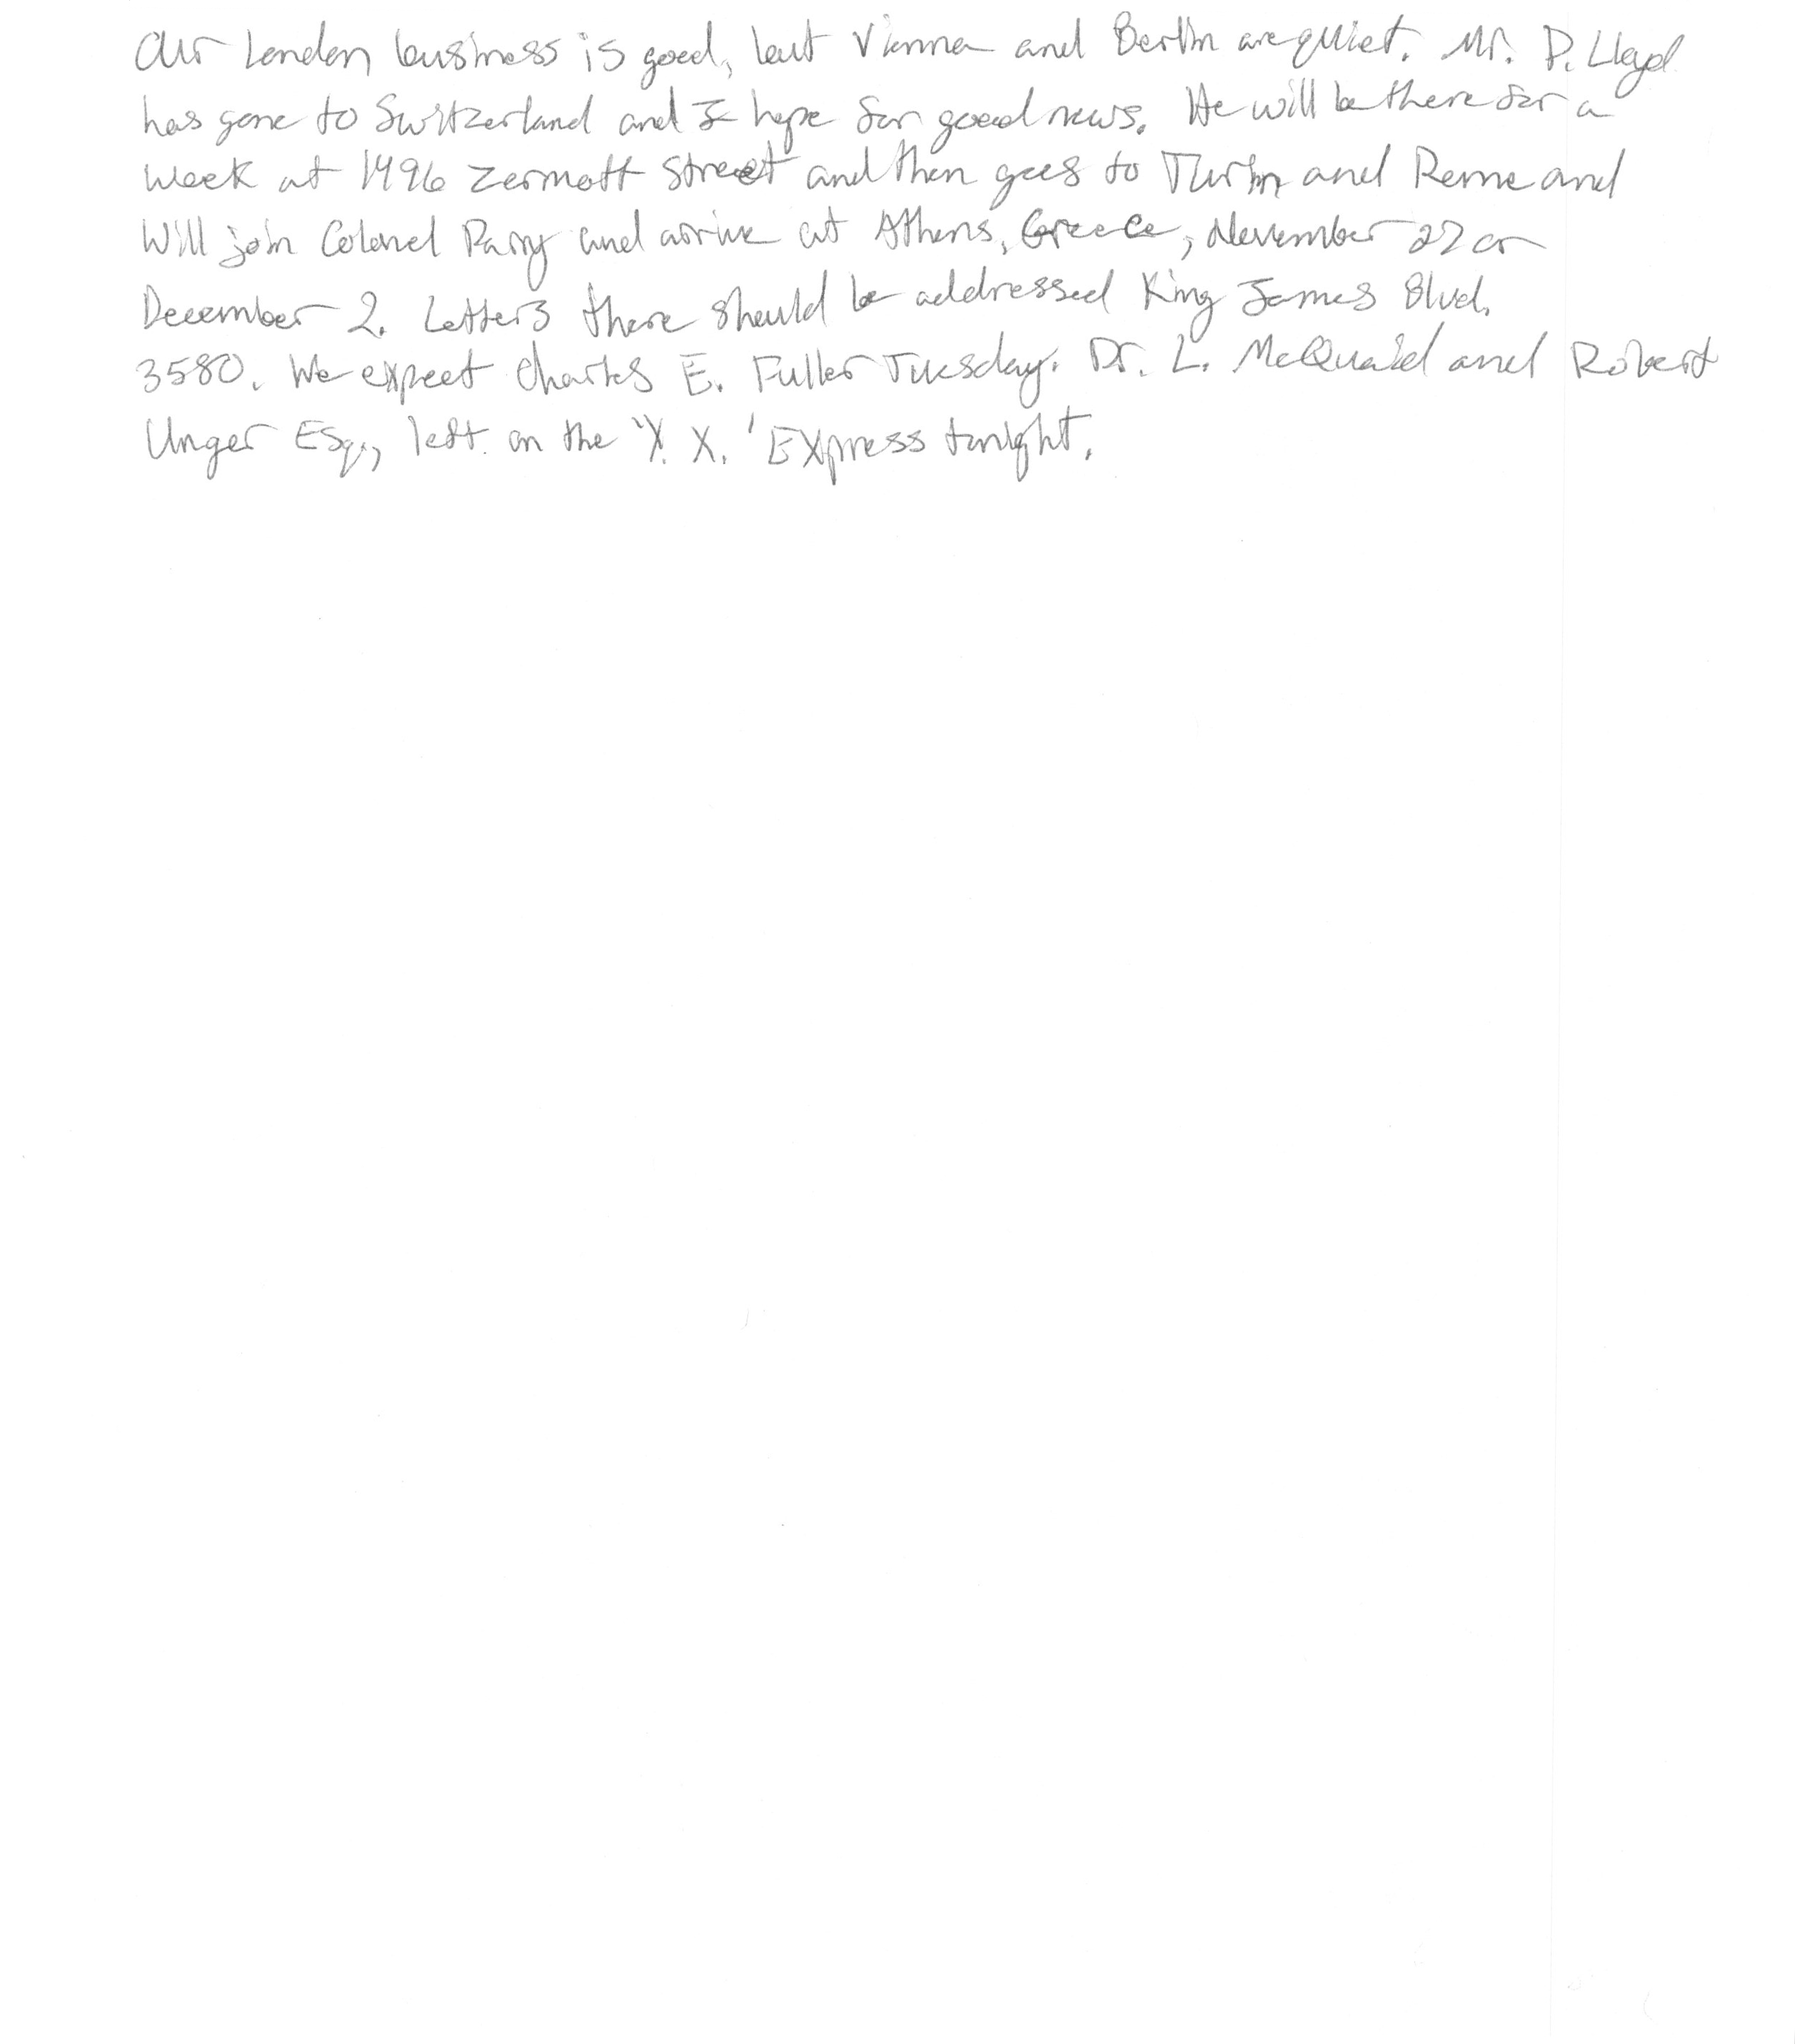 Our London business is good, but Vienna and Berlin are quiet. Mr. D. Lloyd
has gone to Switzerland and I hope for good news. He will be there for a
week at 1496 Zermott Street and then goes to Turin and Rome and
will join Colonel Parry and arrive at Athens, Greece, November 27 or
December 2. Letters there should be addressed King James Blvd.
3580. We expect Charles E. Fuller Tuesday. Dr. L. McQuaid and Robert
Unger Esq., left on the 'X. X.' Express tonight.